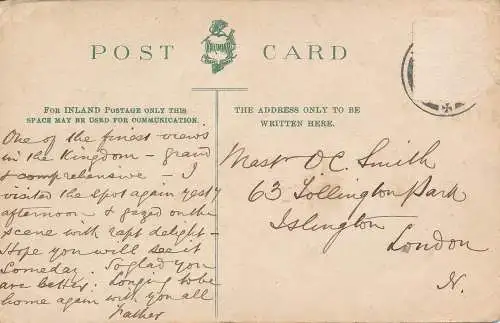 POST CARD
FOR INLAND POSTAGE ONLY THIS
SPACE MAY BE USED FOR COMMUNICATION.
THE ADDRESS ONLY TO BE
WRITTEN HERE.
One of the finest views
in the Kingdom – grand
& comprehensive – I
visited the spot again yesty
afternoon & gazed on the
scene with rapt delight –
Hope you will see it
someday. So glad you
are better. Longing to be
home again with you all
Father
Mastr O. C. Smith
63 Tollington Park
Islington
London
N.